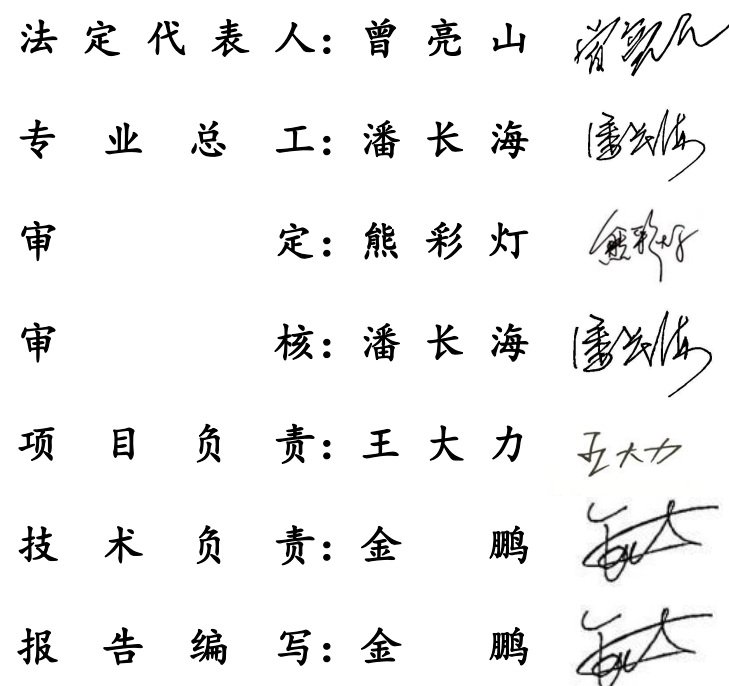 法定代表人：曾亮山
专业总工：潘长海 潘长海
审定：熊彩灯 熊彩灯
审核：潘长海 潘长海
项目负责：王大力 王大力
技术负责：金鹏
报告编写：金鹏